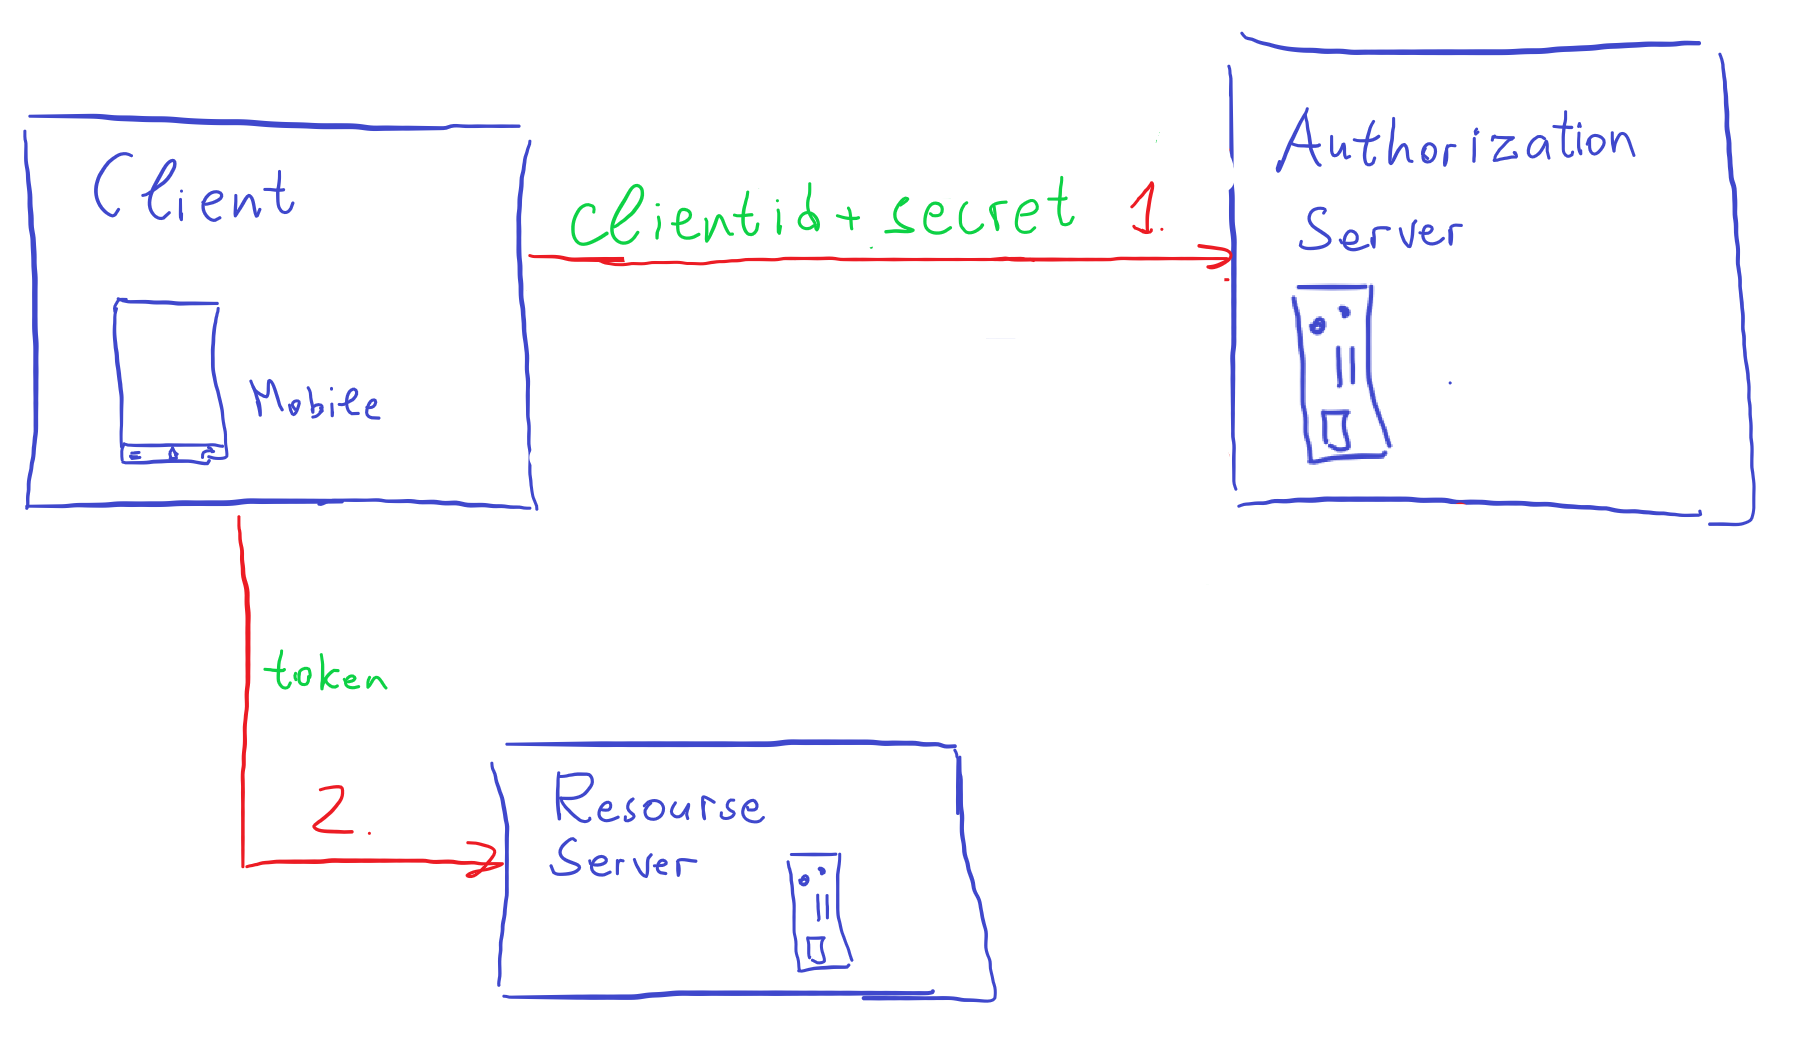 Client
Mobile
Clientid + secret 1.
Authorization
Server
token
2.
Resourse
Server